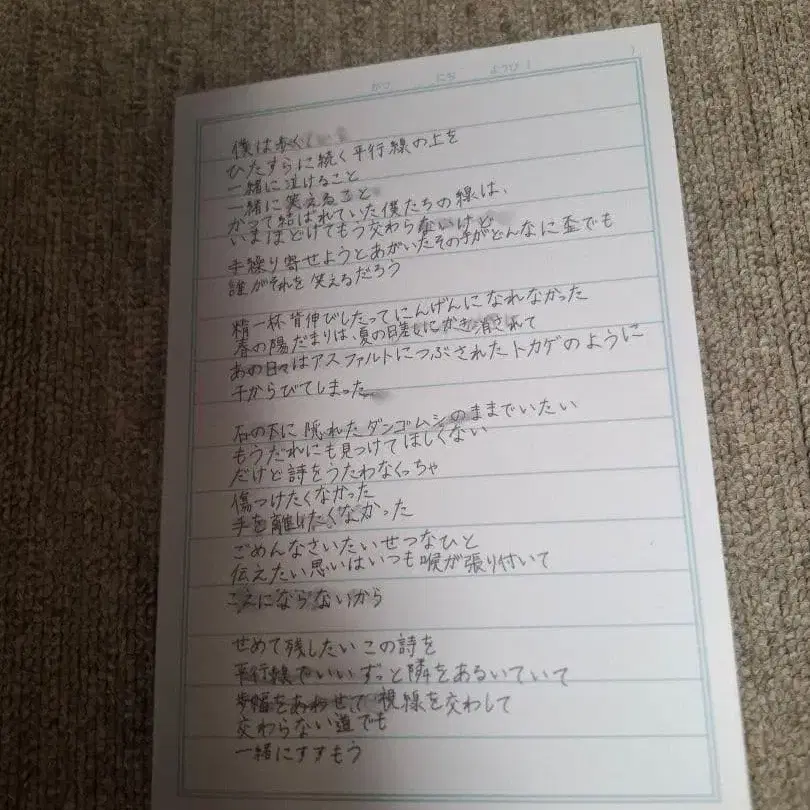 がつ にち ようび
僕は歩く
ひたすらに続く平行線の上を
一緒に泣けること
一緒に笑えること
かつて結ばれていた僕たちの線は、
いまほどけてもう交わらないけど
手繰り寄せようとあがいたその手がどんなに歪でも
誰がそれを笑えるだろう
精一杯背伸びしたってにんげんになれなかった
春の陽だまりは、夏の日差しにかき消されて
あの日々はアスファルトにつぶされたトカゲのように
干からびてしまった
石の下に隠れたダンゴムシのままでいたい
もうだれにも見つけてほしくない
だけど詩をうたわなくっちゃ
傷つけたくなかった
手を離したくなかった
ごめんなさいたいせつなひと
伝えたい思いはいつも喉が張り付いて
こえにならないから
せめて残したいこの詩を
平行線でいいずっと隣をあるいていて
歩幅をあわせて視線を交わして
交わらない道でも
一緒にすすもう